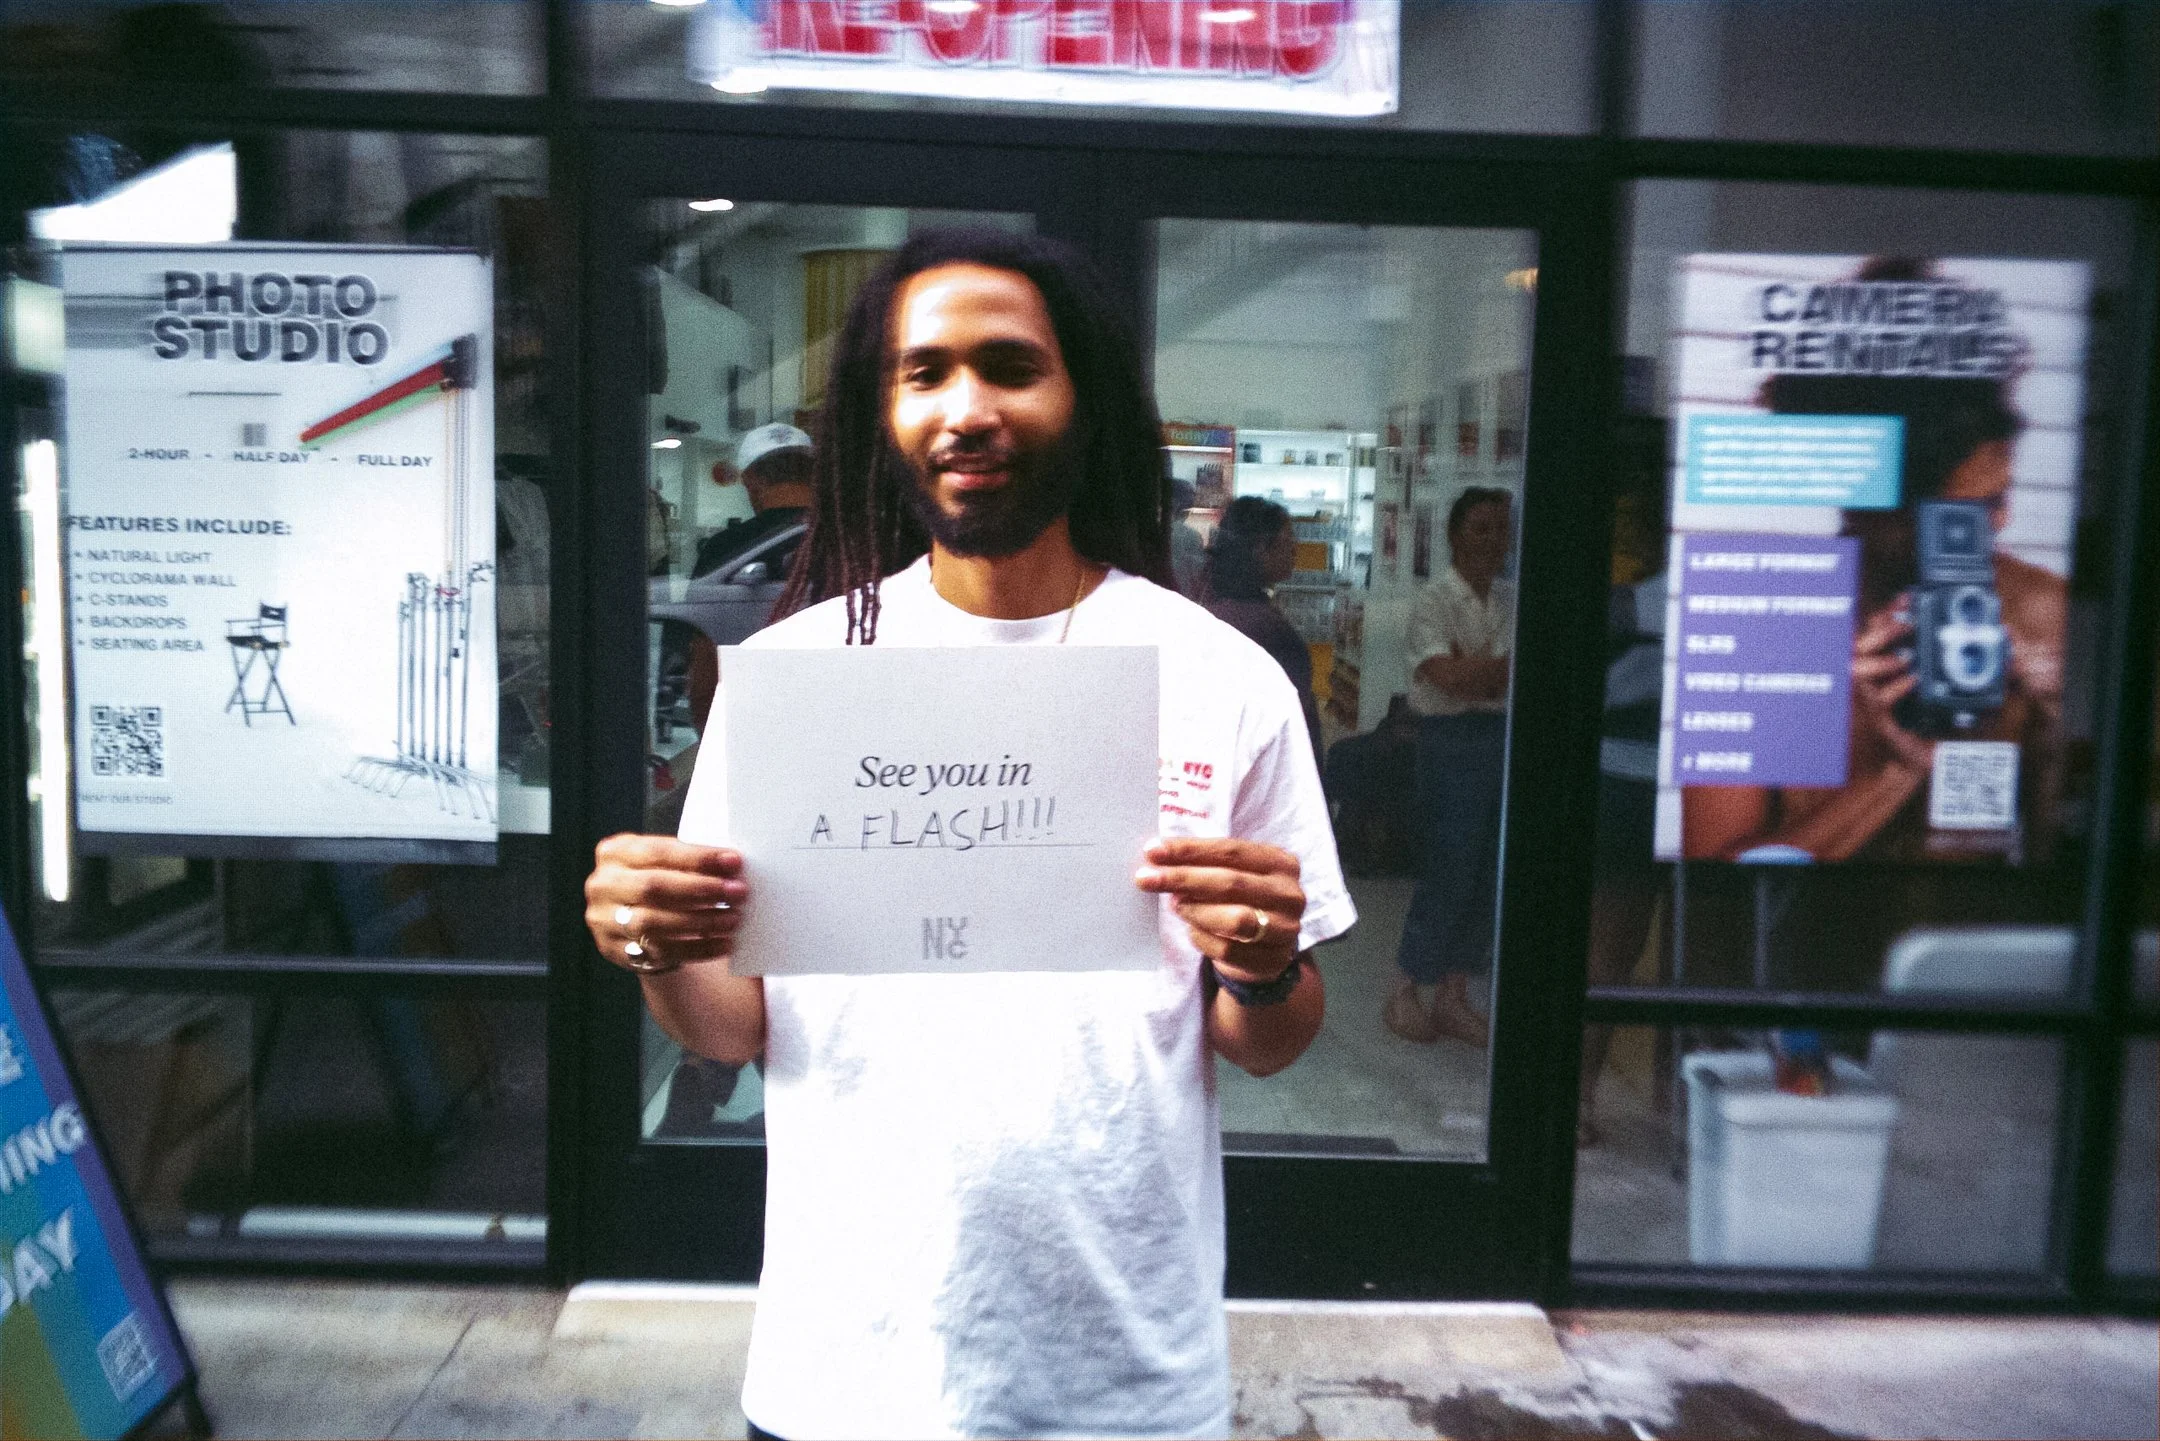 RE-OPENING
PHOTO
STUDIO
2-HOUR - HALF DAY - FULL DAY
FEATURES INCLUDE:
• NATURAL LIGHT
• CYCLORAMA WALL
• C-STANDS
• BACKDROPS
• SEATING AREA
RENT OUR STUDIO
Today
See you in
A FLASH!!!
NYC
NYC
CAMERA
RENTALS
LARGE FORMAT
MEDIUM FORMAT
SLRS
VIDEO CAMERAS
LENSES
+ MORE
NING
DAY